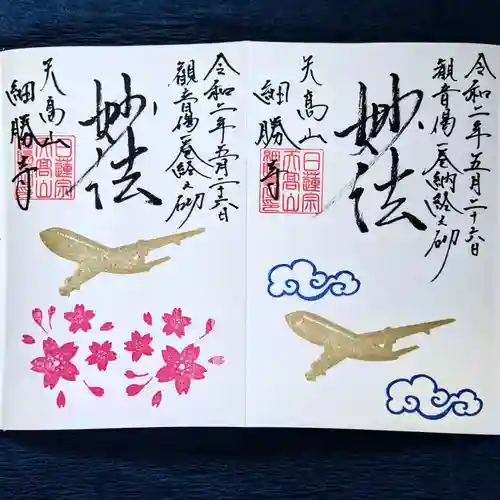 令和二年五月二十六日
観音偈一巻納経之砌
妙法
天高山
細勝寺
日蓮宗
天高山
令和二年五月二十六日
観音偈一巻納経之砌
妙法
天高山
細勝寺
日蓮宗
天高山